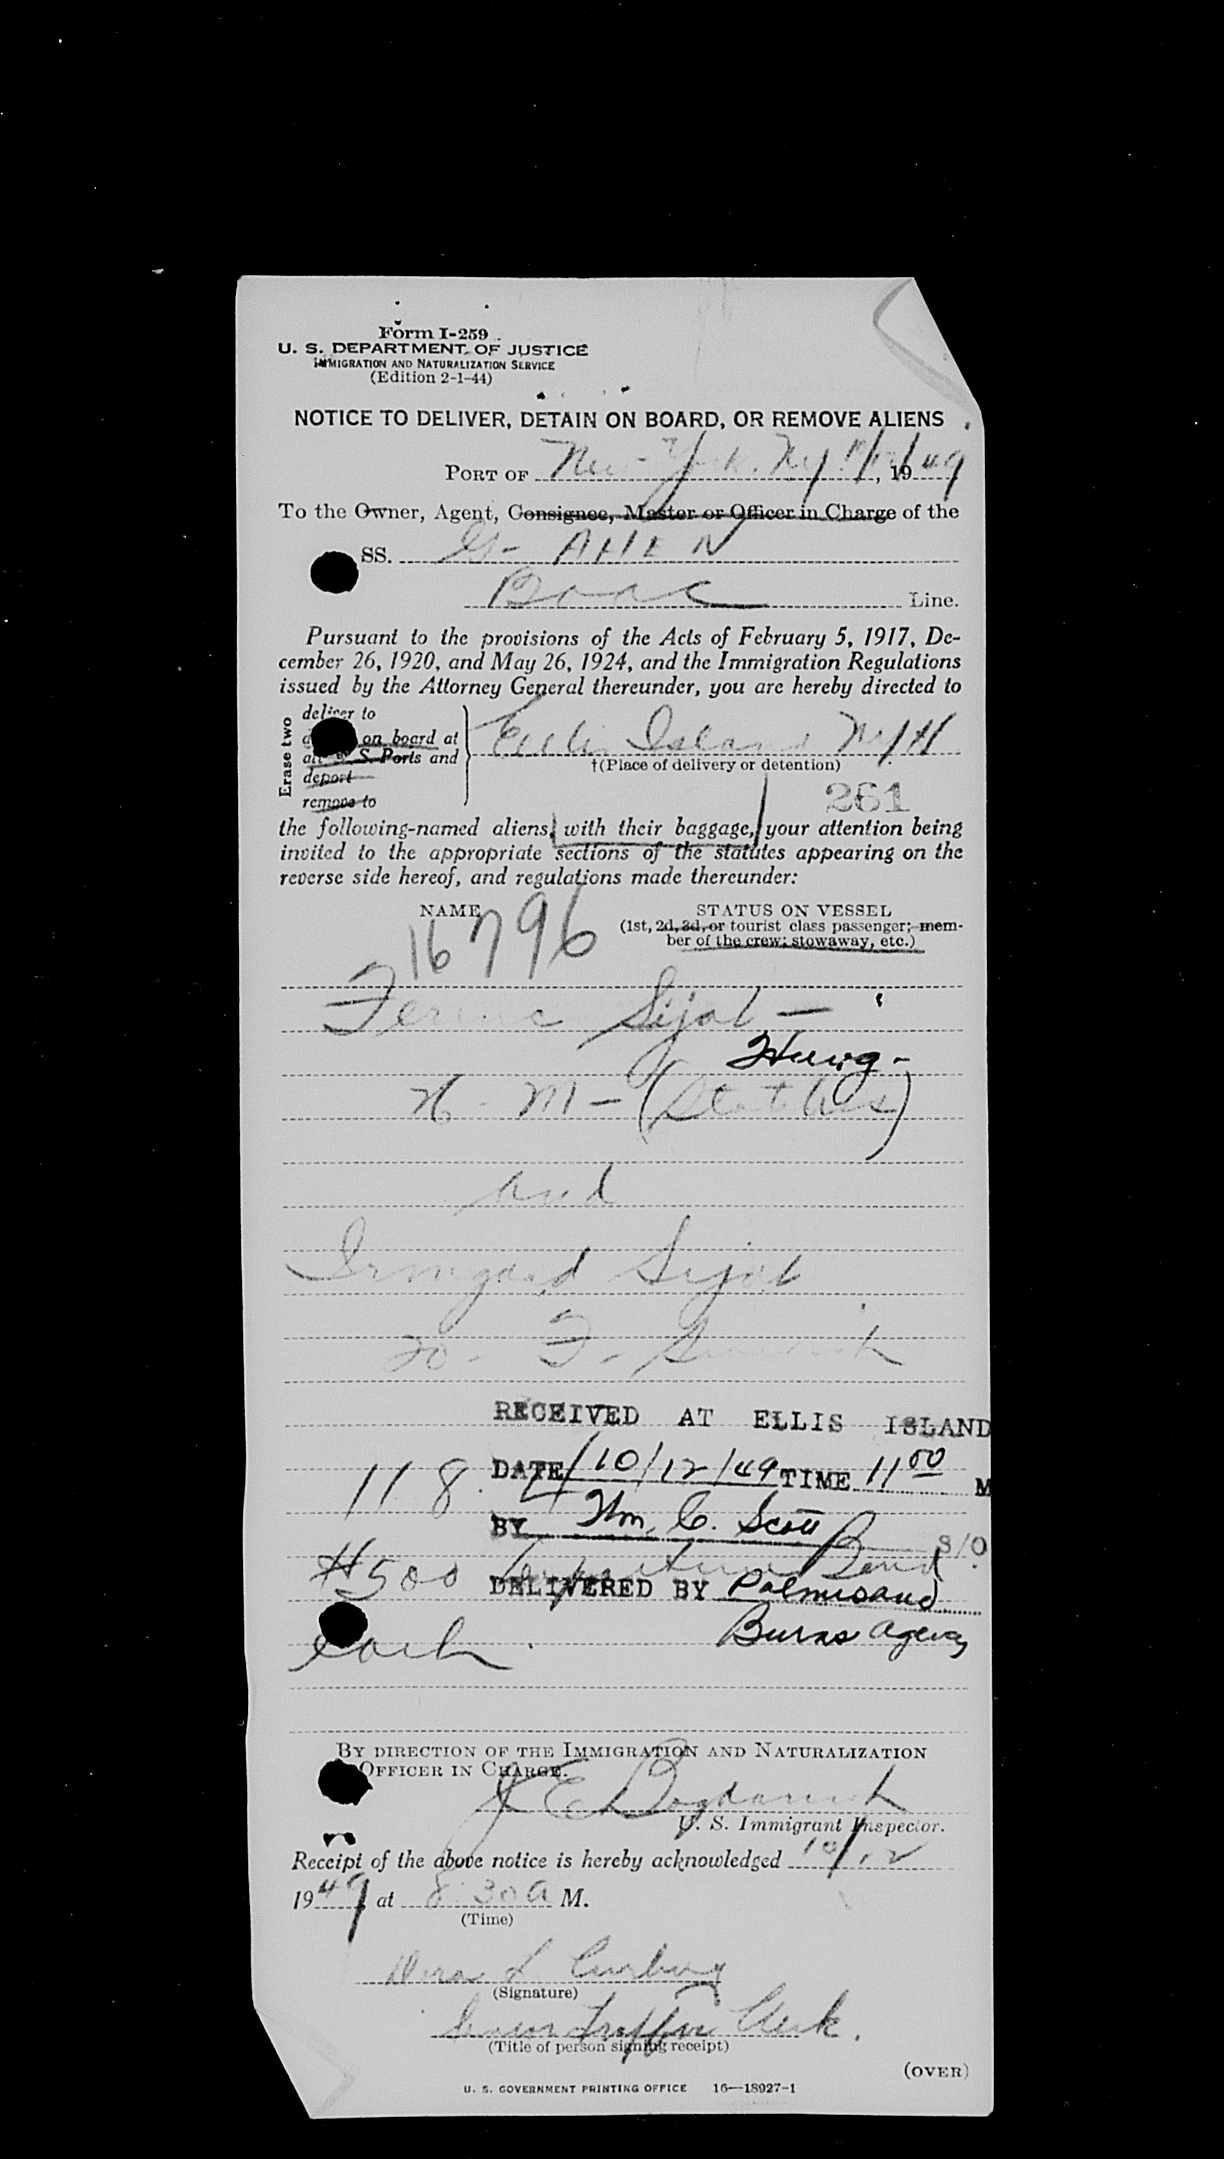 Form I-259
U. S. DEPARTMENT OF JUSTICE
IMMIGRATION AND NATURALIZATION SERVICE
(Edition 2-1-44)
NOTICE TO DELIVER, DETAIN ON BOARD, OR REMOVE ALIENS
PORT OF New York, NY 10/12/, 1949
To the Owner, Agent, Consignee, Master or Officer in Charge of the
SS. G- AHEN
Boac Line.
Pursuant to the provisions of the Acts of February 5, 1917, De-
cember 26, 1920, and May 26, 1924, and the Immigration Regulations
issued by the Attorney General thereunder, you are hereby directed to
Erase two
deliver to
on board at
all U. S. Ports and
deport
remove to
Ellis Island NYH
†(Place of delivery or detention)
261
the following-named aliens, with their baggage, your attention being
invited to the appropriate sections of the statutes appearing on the
reverse side hereof, and regulations made thereunder:
NAME
STATUS ON VESSEL
(1st, 2d, 3d, or tourist class passenger; mem-
ber of the crew; stowaway, etc.)
16796
Ferenc Sijal -
Hung-
M - (Stateless)
and
Irmgard Sijal
F-
RECEIVED AT ELLIS ISLAND
DATE 10/12/49 TIME 11 00 M
118.
BY Wm. C. Scott S/O
$500 Departure Bond
DELIVERED BY Palmisano
Burns Agency
each
BY DIRECTION OF THE IMMIGRATION AND NATURALIZATION
OFFICER IN CHARGE.
J E Bogdanich
U. S. Immigrant Inspector.
Receipt of the above notice is hereby acknowledged 10/12
1949 at 8:30 A M.
(Time)
Dora L
(Signature)
Senior Traffic Clerk.
(Title of person signing receipt)
(OVER)
U. S. GOVERNMENT PRINTING OFFICE 16—18927-1